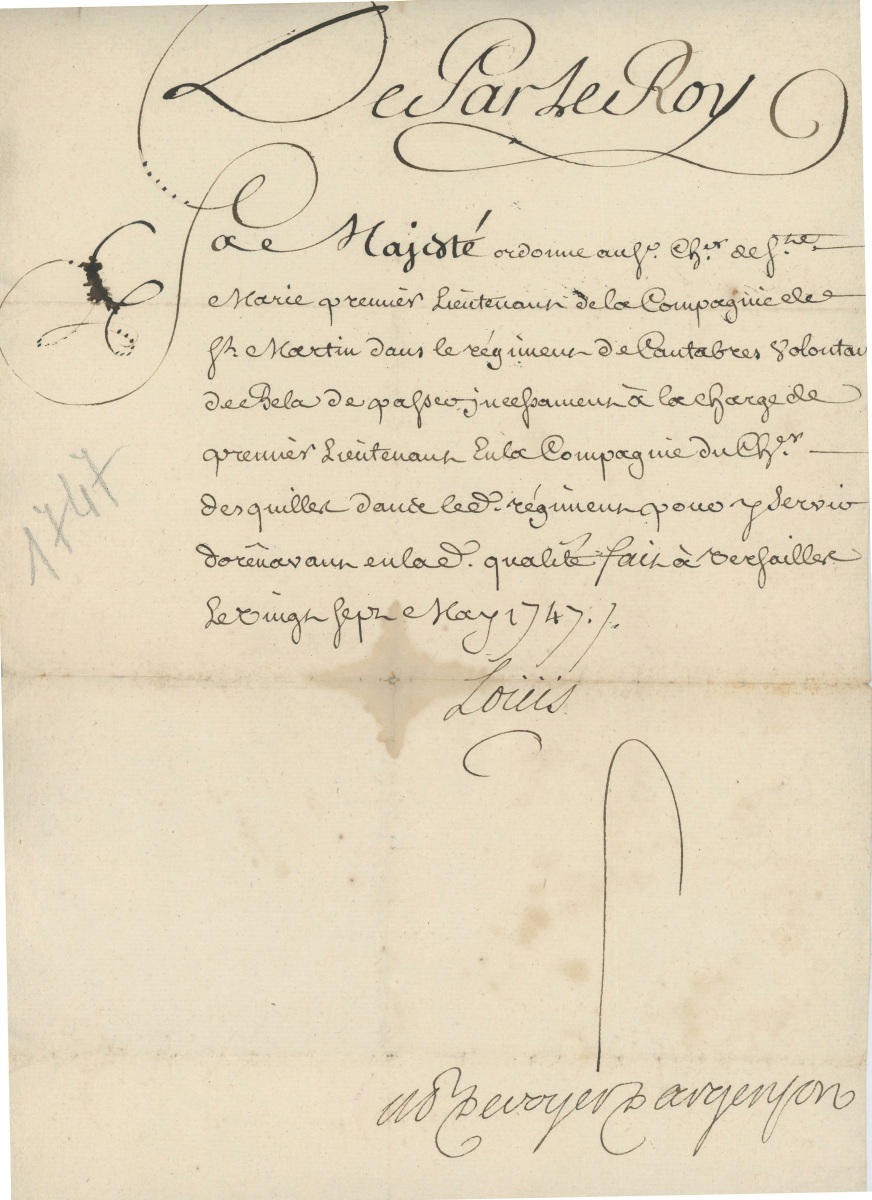 De Par Le Roy
Sa Majesté ordonne au Sr. Chr. de Ste.
Marie premier Lieutenant de la Compagnie de
St. Martin dans le régiment de Cantabres Volontai
de Bela de passer incessament à la charge de
premier Lieutenant En la Compagnie du Chr.
desquilles dans led. régiment pour y servir
dorênavant en lad. qualité fait à Versailles
Le vingt sept May 1747./.
Loüis
1747
De voyer Dargenson